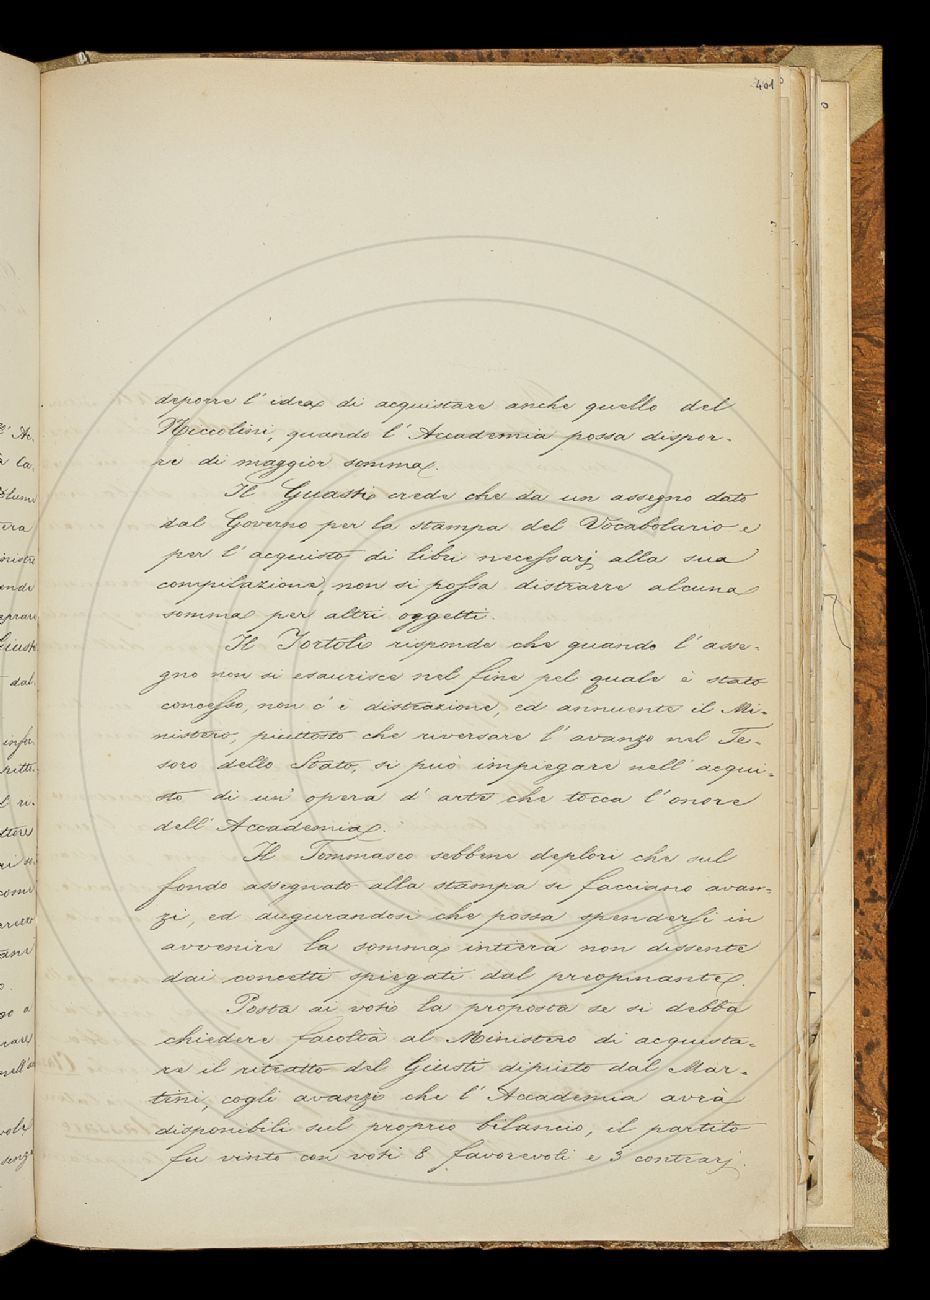 401
deporre l'idea di acquistare anche quello del
Niccolini, quando l'Accademia possa dispor-
re di maggior somma.
Il Guasti crede che da un assegno dato
dal Governo per la stampa del Vocabolario e
per l'acquisto di libri necessarj alla sua
compilazione, non si possa distrarre alcuna
somma per altri oggetti.
Il Tortoli risponde che quando l'asse-
gno non si esaurisce nel fine pel quale è stato
concesso, non c'è distrazione, ed annuente il Mi-
nistero, piuttosto che riversare l'avanzo nel Te-
soro dello Stato, si può impiegare nell'acqui-
sto di un'opera d'arte che tocca l'onore
dell'Accademia.
Il Tommaseo sebbene deplori che sul
fondo assegnato alla stampa si facciano avan-
zi, ed augurandosi che possa spendersi in
avvenire la somma intiera non dissente
dai concetti spiegati dal preopinante.
Posta ai voti la proposta se si debba
chiedere facoltà al Ministero di acquista-
re il ritratto del Giusti dipinto dal Mar-
tini, cogli avanzi che l'Accademia avrà
disponibili sul proprio bilancio, il partito
fu vinto con voti 8 favorevoli e 3 contrarj.